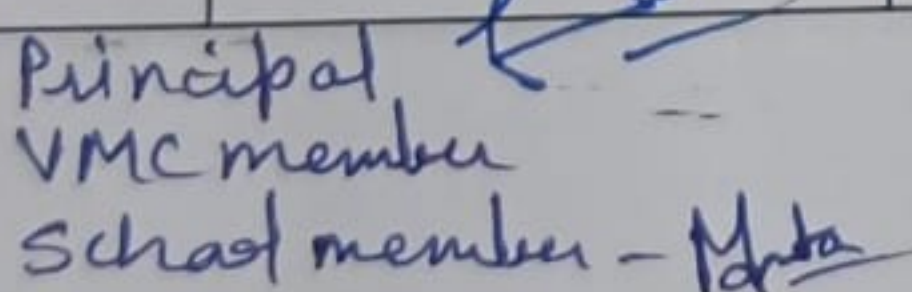 Principal
VMC member
School member -